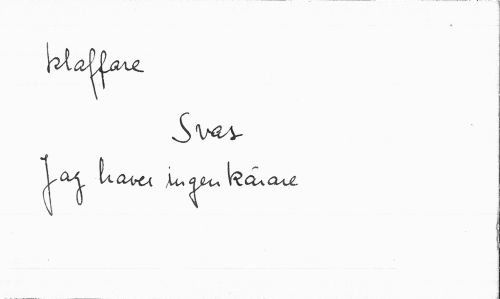 klaffare
Svas
Jag haver ingen kärare